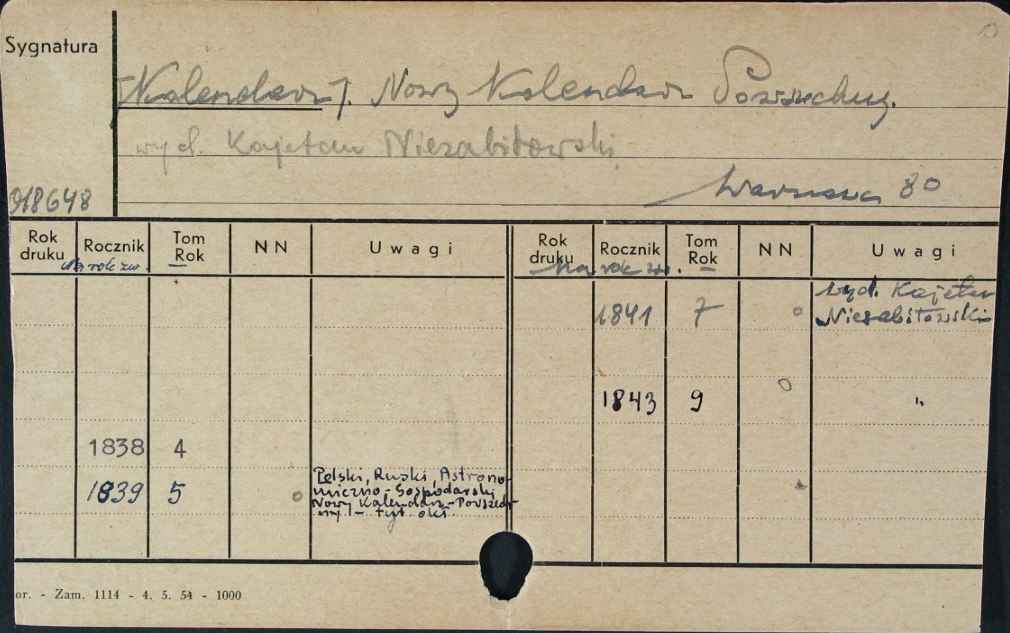 Sygnatura
[Kalendarz]. Nowy Kalendarz Powszechny.
wyd. Kajetan Niezabitowski
Warszawa 8°
918648
Rok druku Rocznik Tom Rok NN Uwagi Rok druku Rocznik Tom Rok NN Uwagi
Na rok zw. Na rok zw.
1841 7 o wyd. Kajetan
Niezabitowski
1843 9 o "
1838 4
1839 5 o Polski, Ruski, Astrono-
miczno-Gospodarski
Nowy Kalendarz Powszech-
ny! - tyt. okł.
or. - Zam. 1114 - 4. 5. 54 - 1000